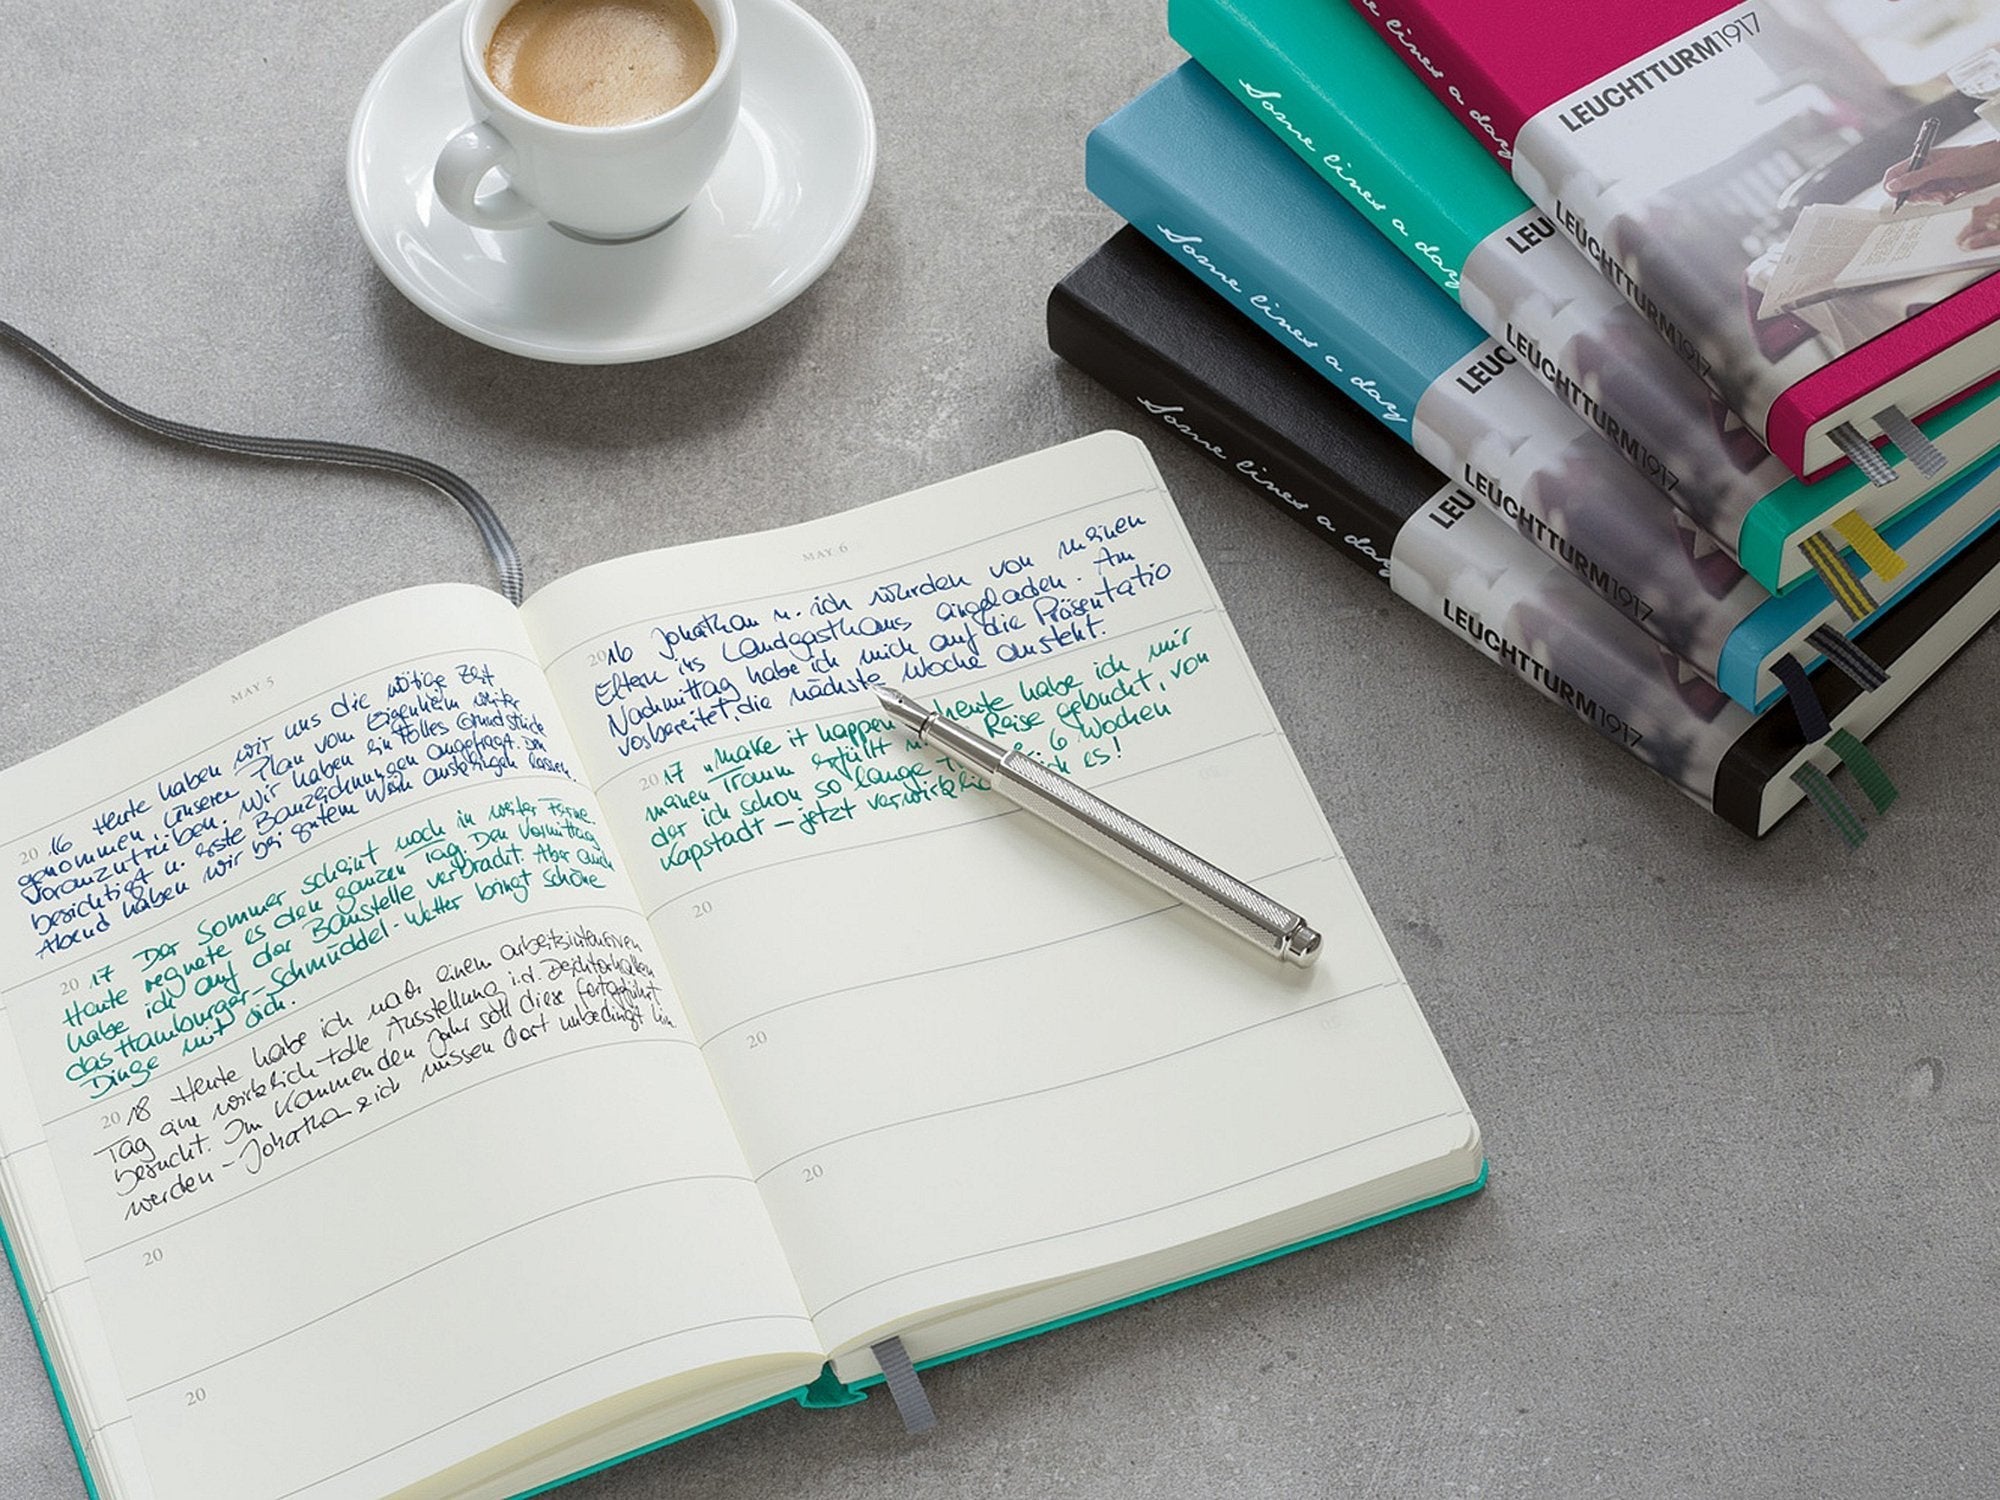 MAY 5
2016 Heute haben wir uns die nötige Zeit
genommen, unseren Plan vom Eigenheim weiter
voranzutreiben. Wir haben ein tolles Grundstück
besichtigt u. erste Bauzeichnungen angefragt. Den
Abend haben wir bei gutem Wein ausklingen lassen.
2017 Der Sommer scheint noch in weiter Ferne.
Heute regnete es den ganzen Tag. Den Vormittag
habe ich auf der Baustelle verbracht. Aber auch
das Hamburger-Schmuddel-Wetter bringt schöne
Dinge mit sich.
2018 Heute habe ich nach einem arbeitsintensiven
Tag eine wirklich tolle Ausstellung i.d. Deichtorhallen
besucht. Im kommenden Jahr soll diese fortgeführt
werden - Jonathan & ich müssen dort unbedingt hin.
20
20
MAY 6
2016 Jonathan u. ich wurden von meinen
Eltern ins Landgasthaus eingeladen. Am
Nachmittag habe ich mich auf die Präsentatio
vorbereitet, die nächste Woche ansteht.
2017 "Make it happen heute habe ich mir
meinen Traum erfüllt Reise gebucht, von
der ich schon so lange 6 Wochen
Kapstadt - jetzt ich es!
20
20
20
Some lines a day
LEUCHTTURM1917
LEUCHTTURM1917
Some lines a day
LEU
LEUCHTTURM1917
Some lines a day
LEUC
LEUCHTTURM1917
Some lines a day
LEU
LEUCHTTURM1917